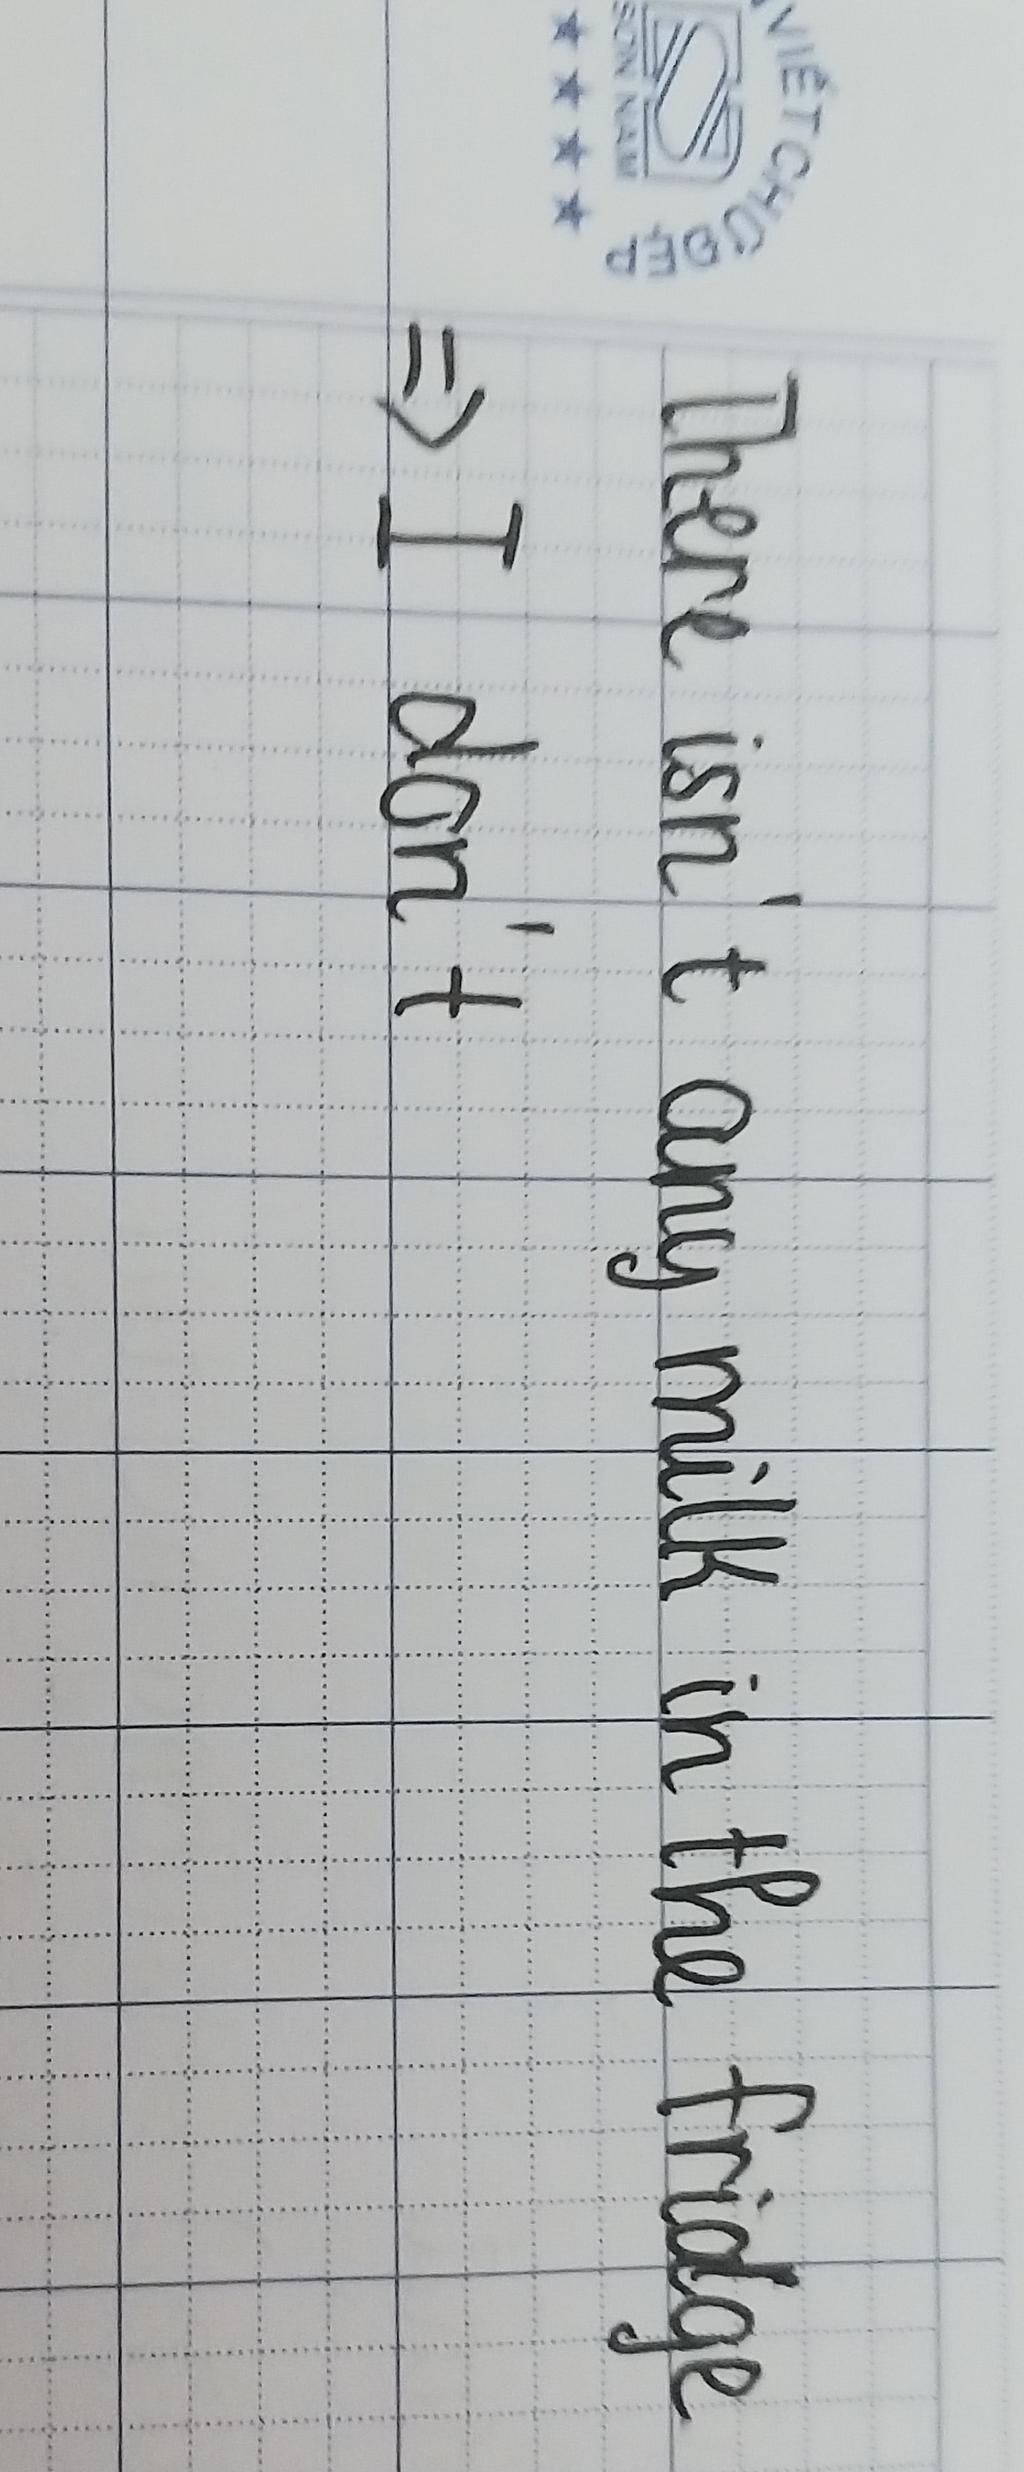 VIẾT CHỮ ĐẸP
SƠN NAM
There isn't any milk in the fridge
=> I don't